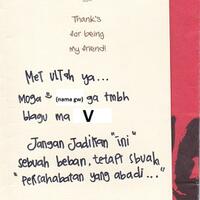 Thank's
for being
my friend!
Met ulTah ya...
Moga² (nama gw) ga tmbh
blagu ma V
Jangan Jadikan "ini"
sebuah beban, tetapi sbuah
"persahabatan yang abadi..."